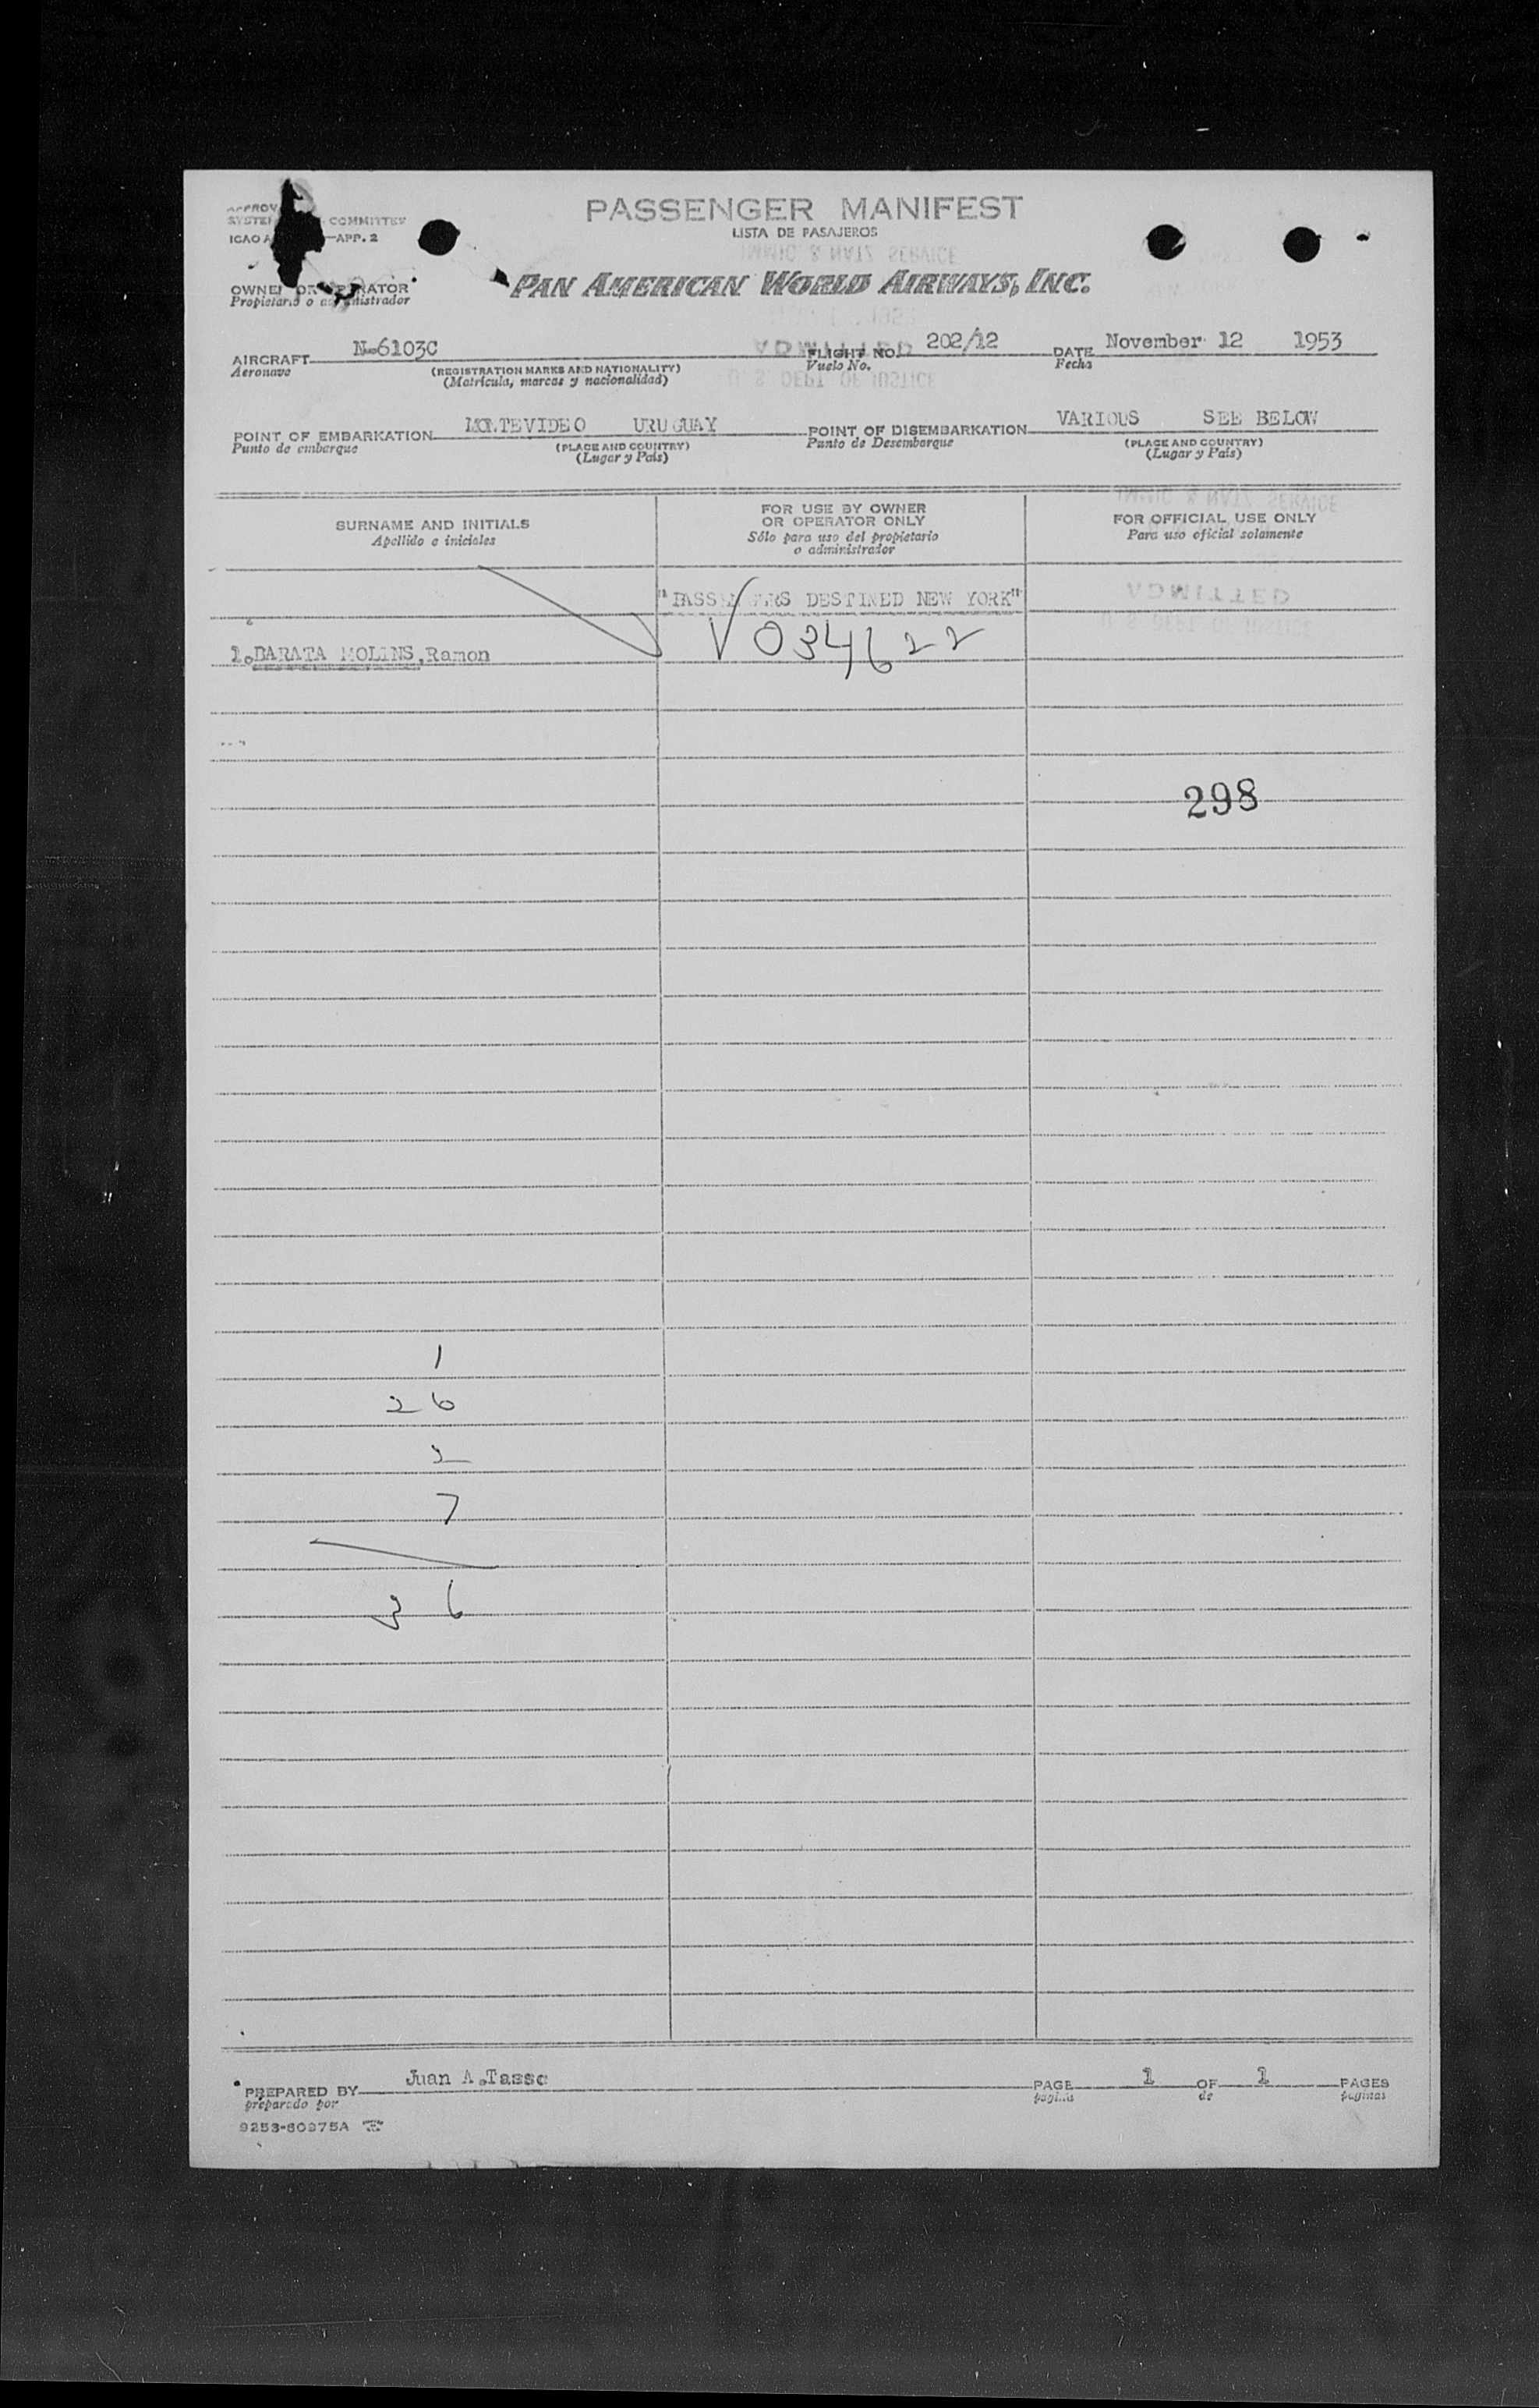 PASSENGER MANIFEST
LISTA DE PASAJEROS
COMMITTEE
ICAO
APP. 2
PAN AMERICAN WORLD AIRWAYS, INC.
Propietario o
AIRCRAFT N-6103C FLIGHT NO. 202/12 DATE November 12 1953
Aeronave (REGISTRATION MARKS AND NATIONALITY) Vuelo No. Fecha
(Matrícula, marcas y nacionalidad)
POINT OF EMBARKATION MONTEVIDEO URUGUAY POINT OF DISEMBARKATION VARIOUS SEE BELOW
Punto de embarque (PLACE AND COUNTRY) Punto de Desembarque (PLACE AND COUNTRY)
(Lugar y País) (Lugar y País)
SURNAME AND INITIALS
Apellido e iniciales
FOR USE BY OWNER
OR OPERATOR ONLY
Sólo para uso del propietario
o administrador
FOR OFFICIAL USE ONLY
Para uso oficial solamente
"PASSENGERS DESTINED NEW YORK"
1. BARATA MOLINS, Ramon V 034622
298
1
26
2
7
36
PREPARED BY Juan A. Tasso PAGE 1 OF 1 PAGES
preparado por pagina de paginas
9253-60975A